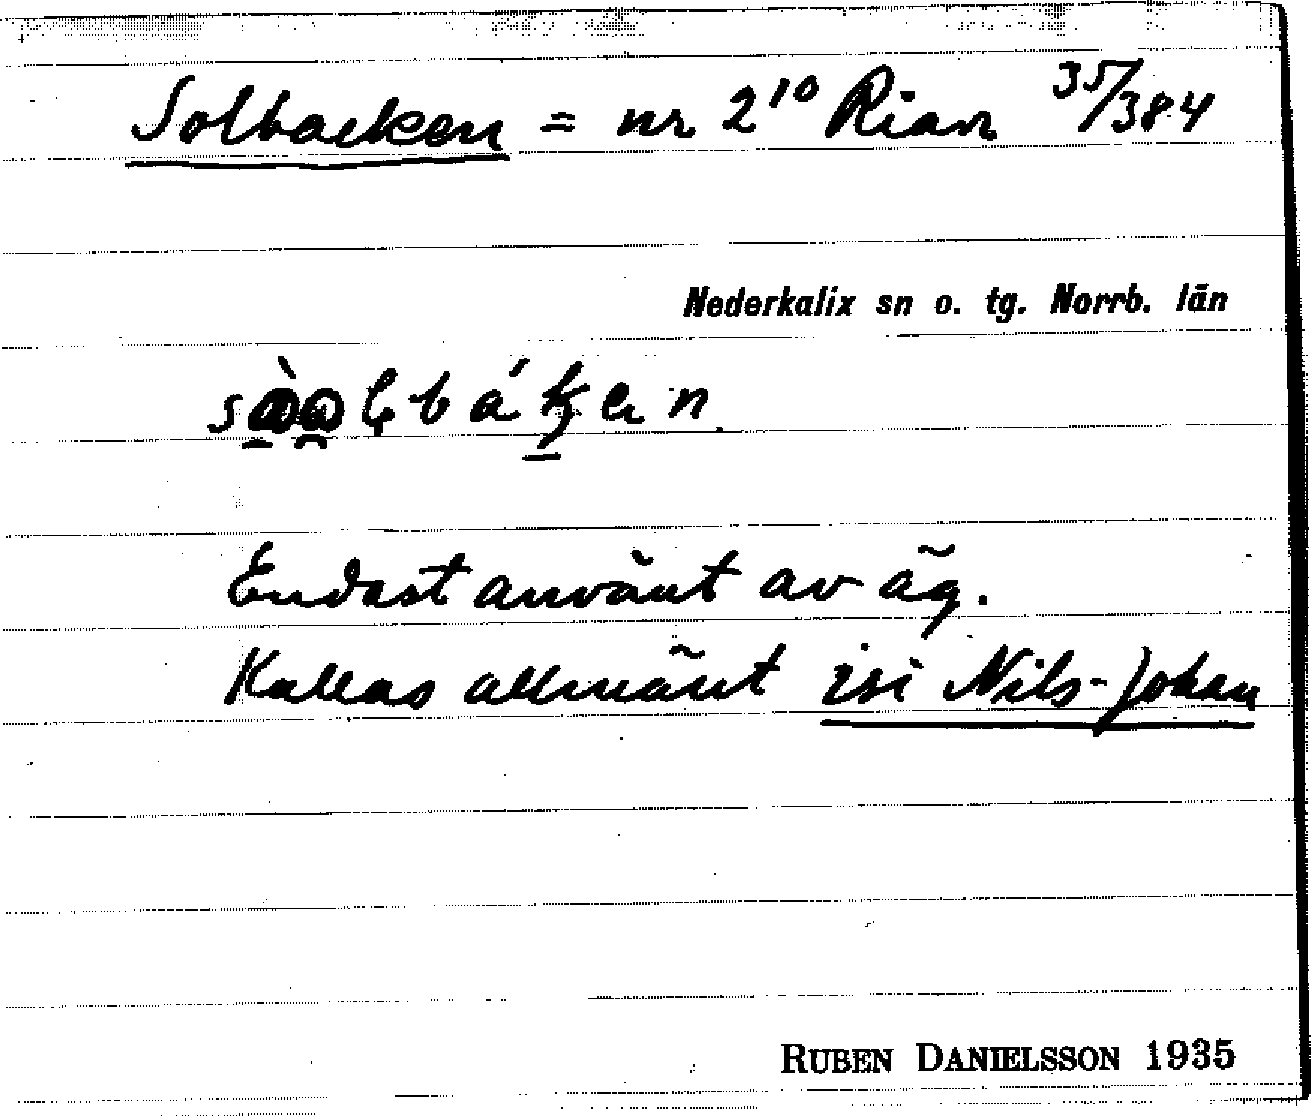 Solbacken = nr 2¹⁰ Rian 35/384
Nederkalix sn o. tg. Norrb. län
Endast använt av äg.
Kallas allmänt isi Nils-Johan
RUBEN DANIELSSON 1935